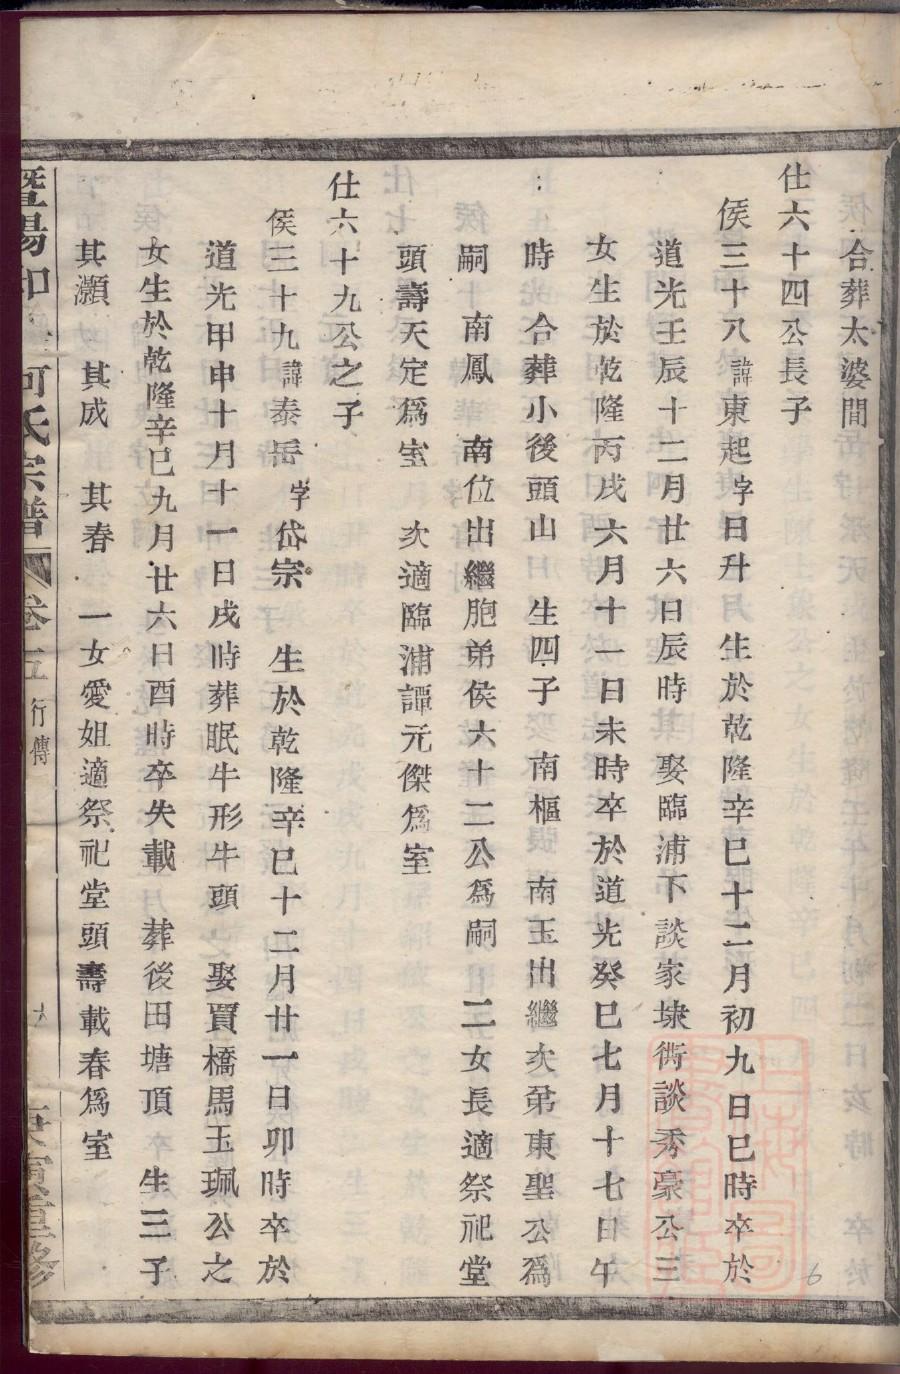 合葬太婆間
仕六十四公長子
侯三十八諱東起字日升 生於乾隆辛巳十二月初九日巳時卒於
道光壬辰十二月廿六日辰時 娶臨浦下談家埭衖談秀豪公三
女生於乾隆丙戌六月十一日未時卒於道光癸巳七月十七日午
時 合葬小後頭山 生四子 南樞 南玉出繼次弟東聖公為
嗣 南鳳 南位出繼胞弟侯六十二公為嗣 二女長適祭祀堂
頭壽天定為室 次適臨浦譚元傑為室
仕六十九公之子
侯三十九諱泰岳字岱宗 生於乾隆辛巳十二月廿一日卯時卒於
道光甲申十月十一日戌時葬眠牛形牛頭 娶賈橋馬玉珮公之
女生於乾隆辛巳九月廿六日酉時卒失載 葬後田塘頂 生三子
其灝 其成 其春 一女愛姐適祭祀堂頭壽載春為室
暨陽 何氏宗譜 卷五 行傳
重修
6